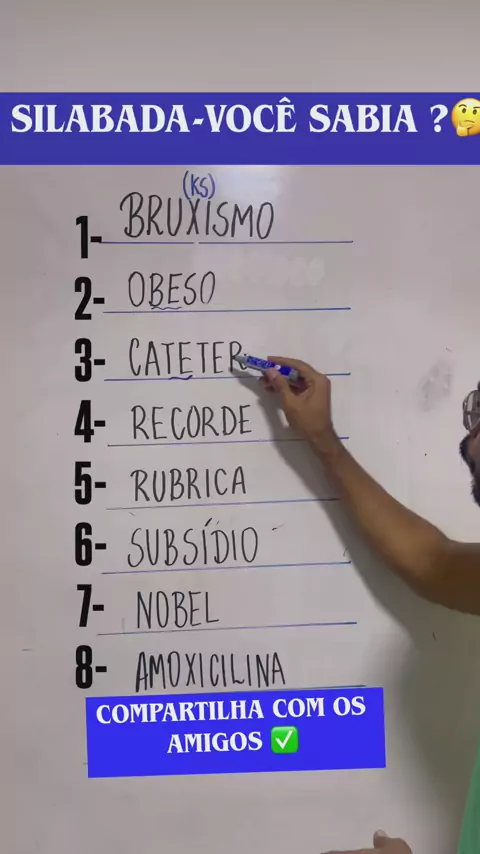 SILABADA-VOCÊ SABIA ?🤔
(KS)
1- BRUXISMO
2- OBESO
3- CATETER
4- RECORDE
5- RUBRICA
6- SUBSÍDIO
7- NOBEL
8- AMOXICILINA
COMPARTILHA COM OS
AMIGOS ✅